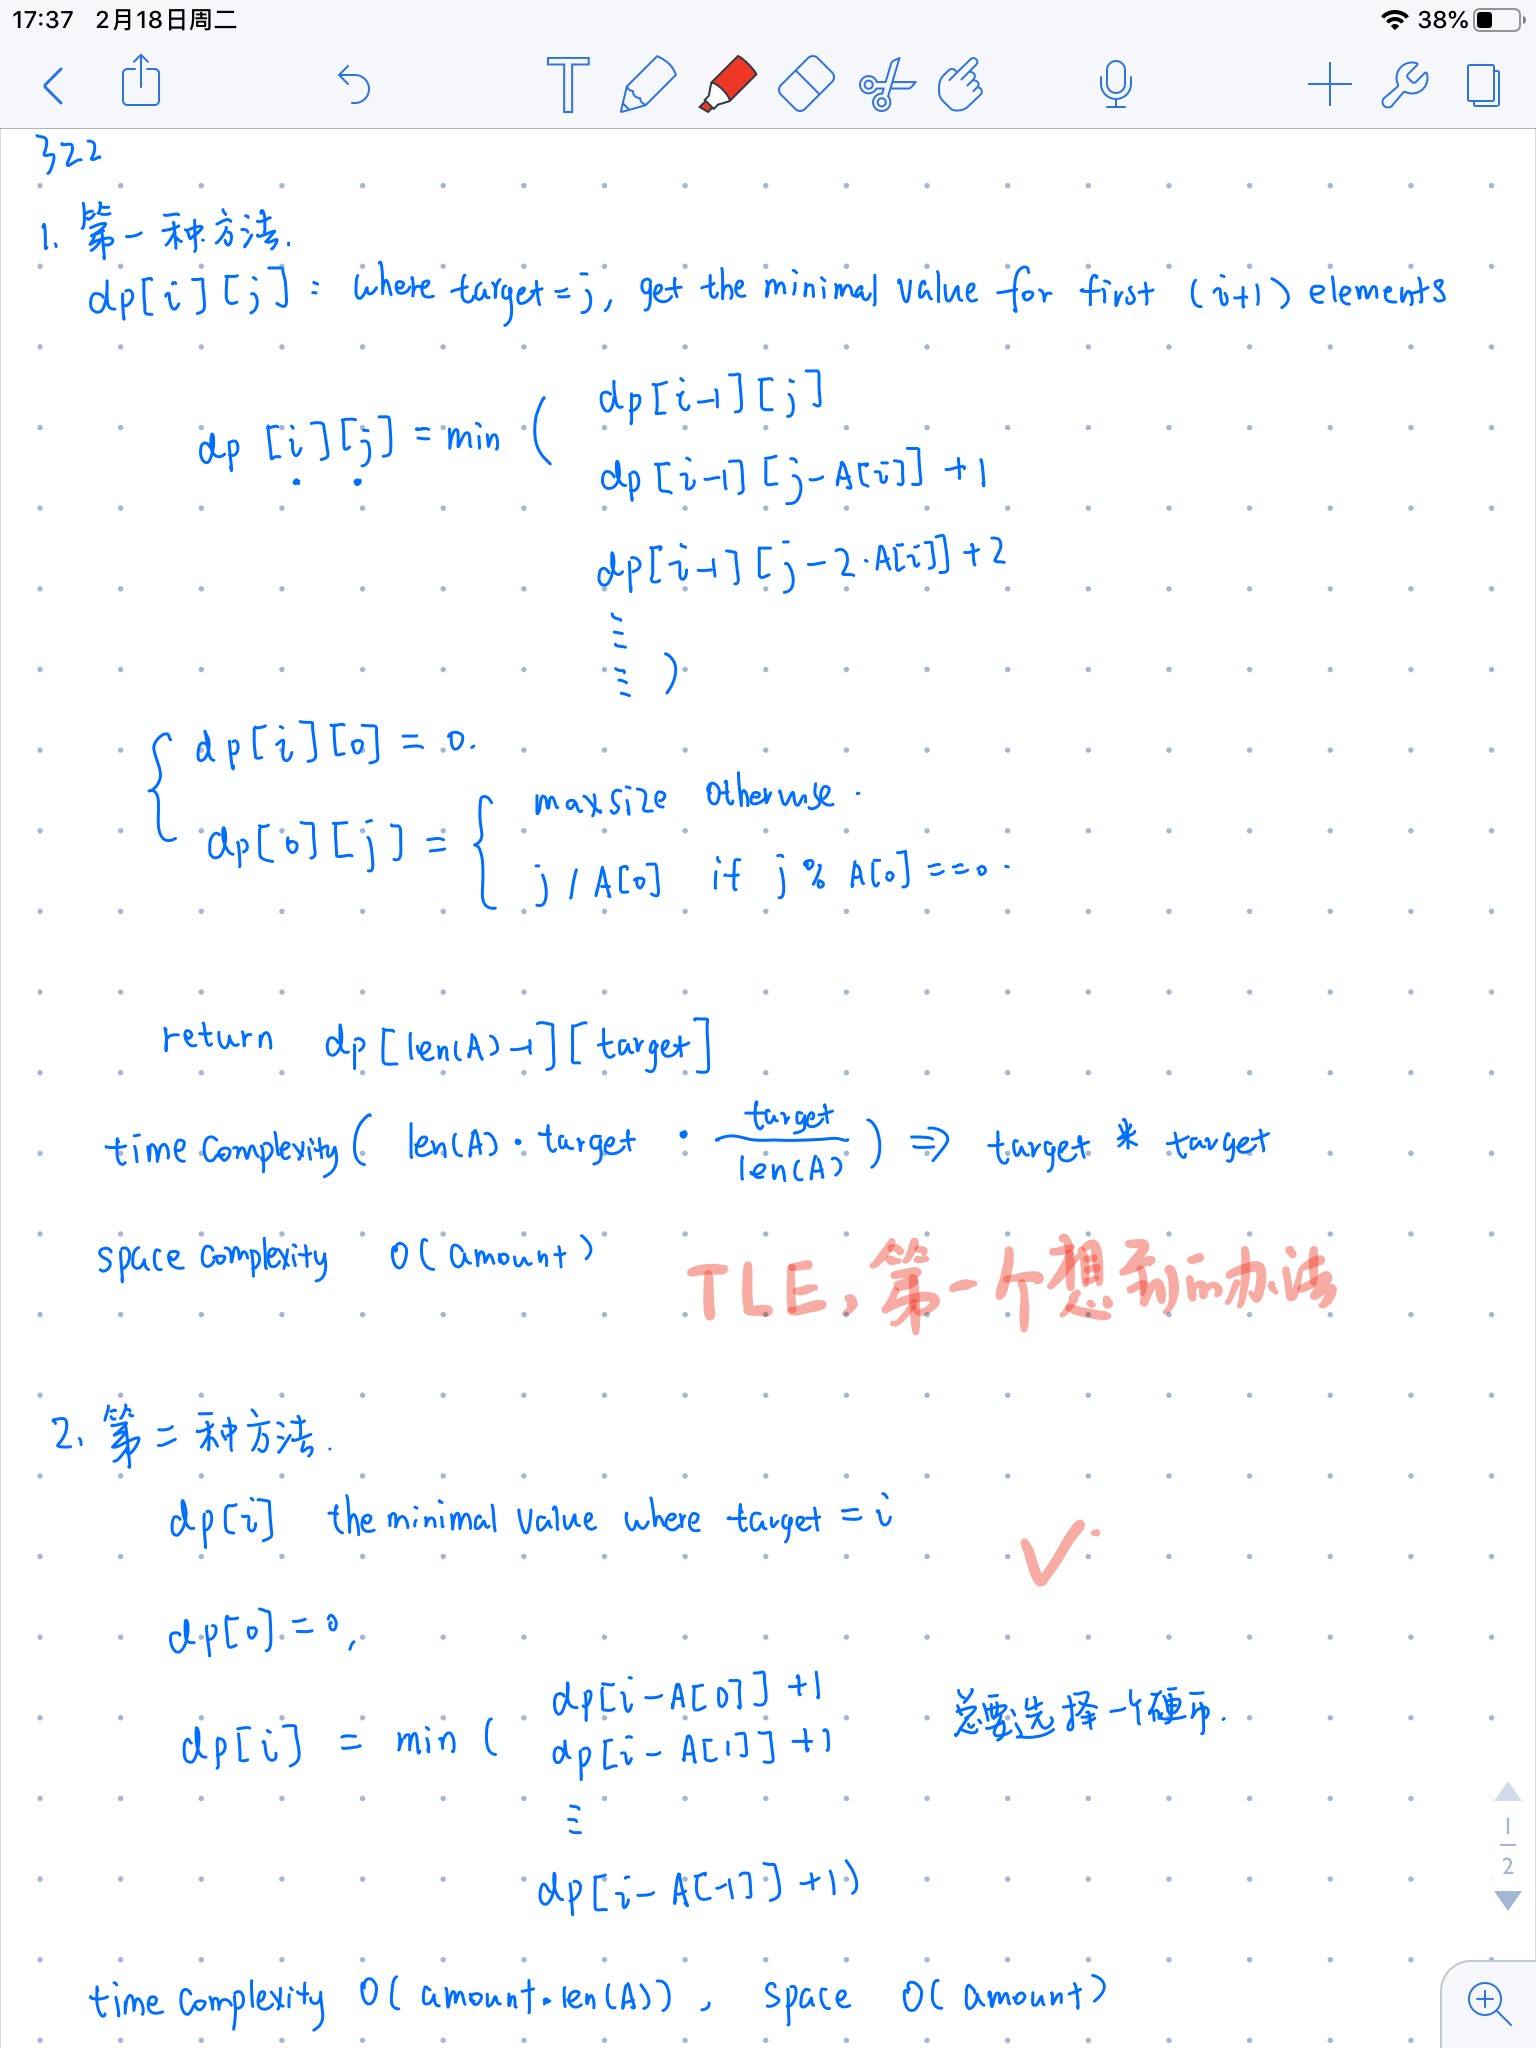 17:37 2月18日周二 38%
T
322
1. 第一种方法.
dp[i][j] : where target=j, get the minimal value for first (i+1) elements
dp[i][j] = min (
dp[i-1][j]
dp[i-1][j-A[i]] +1
dp[i-1][j-2·A[i]] +2
⋮
⋮ )
dp[i][0] = 0.
dp[0][j] = { maxsize otherwise.
j / A[0] if j % A[0] ==0.
return dp[len(A)-1][target]
time complexity ( len(A) · target · target / len(A) ) ⇒ target * target
space complexity O(amount)
TLE, 第一个想到的办法
2. 第二种方法.
dp[i] the minimal value where target = i
✓
dp[0] = 0,
dp[i] = min (
dp[i-A[0]] +1
dp[i-A[1]] +1
⋮
dp[i-A[-1]] +1)
总要选择一个硬币.
1
2
time complexity O(amount·len(A)), space O(amount)